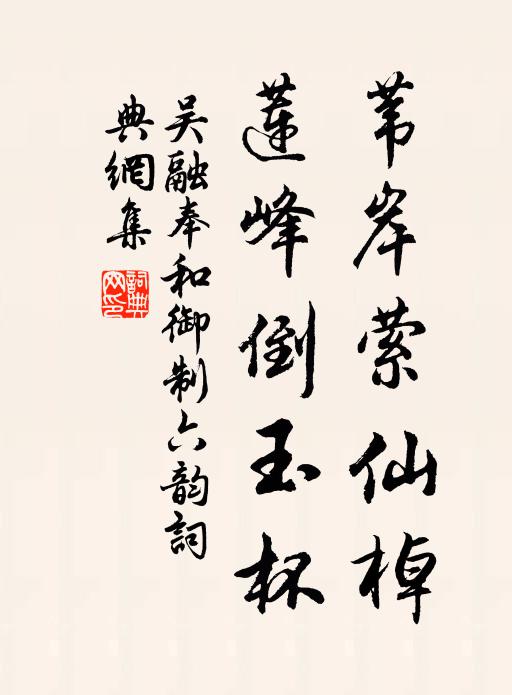 苇岸萦仙棹
蓮峰倒玉杯
吴融奉和御制六韵詞
典網集
詞典网印